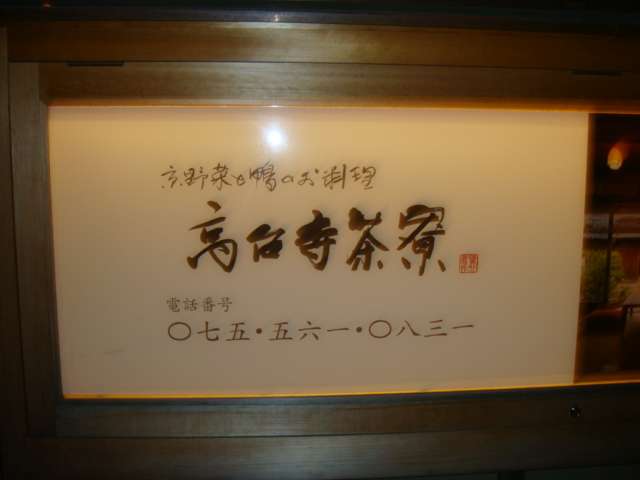 京野菜と鴨のお料理
高台寺茶寮
電話番号
〇七五・五六一・〇八三一